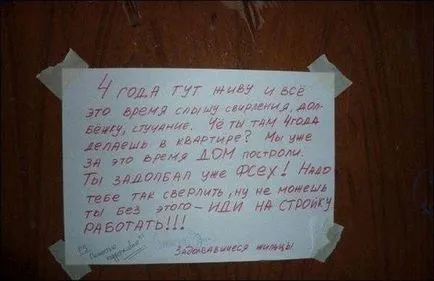 4 ГОДА ТУТ ЖИВУ И ВСЁ
ЭТО ВРЕМЯ СЛЫШУ СВИРЛЕНИЯ, ДОЛ-
БЁЖКУ, СТУЧАНИЕ. ЧЁ ТЫ ТАМ 4 ГОДА
ДЕЛАЕШЬ В КВАРТИРЕ? МЫ УЖЕ
ЗА ЭТО ВРЕМЯ ДОМ ПОСТРОЛИ.
ТЫ ЗАДОЛБАЛ УЖЕ ФСЕХ! НАДО
ТЕБЕ ТАК СВЕРЛИТЬ, НУ НЕ МОЖЕШЬ
ТЫ БЕЗ ЭТОГО - ИДИ НА СТРОЙКУ
РАБОТАТЬ!!!
ЗАДОЛБАВШИЕСЯ ЖИЛЬЦЫ